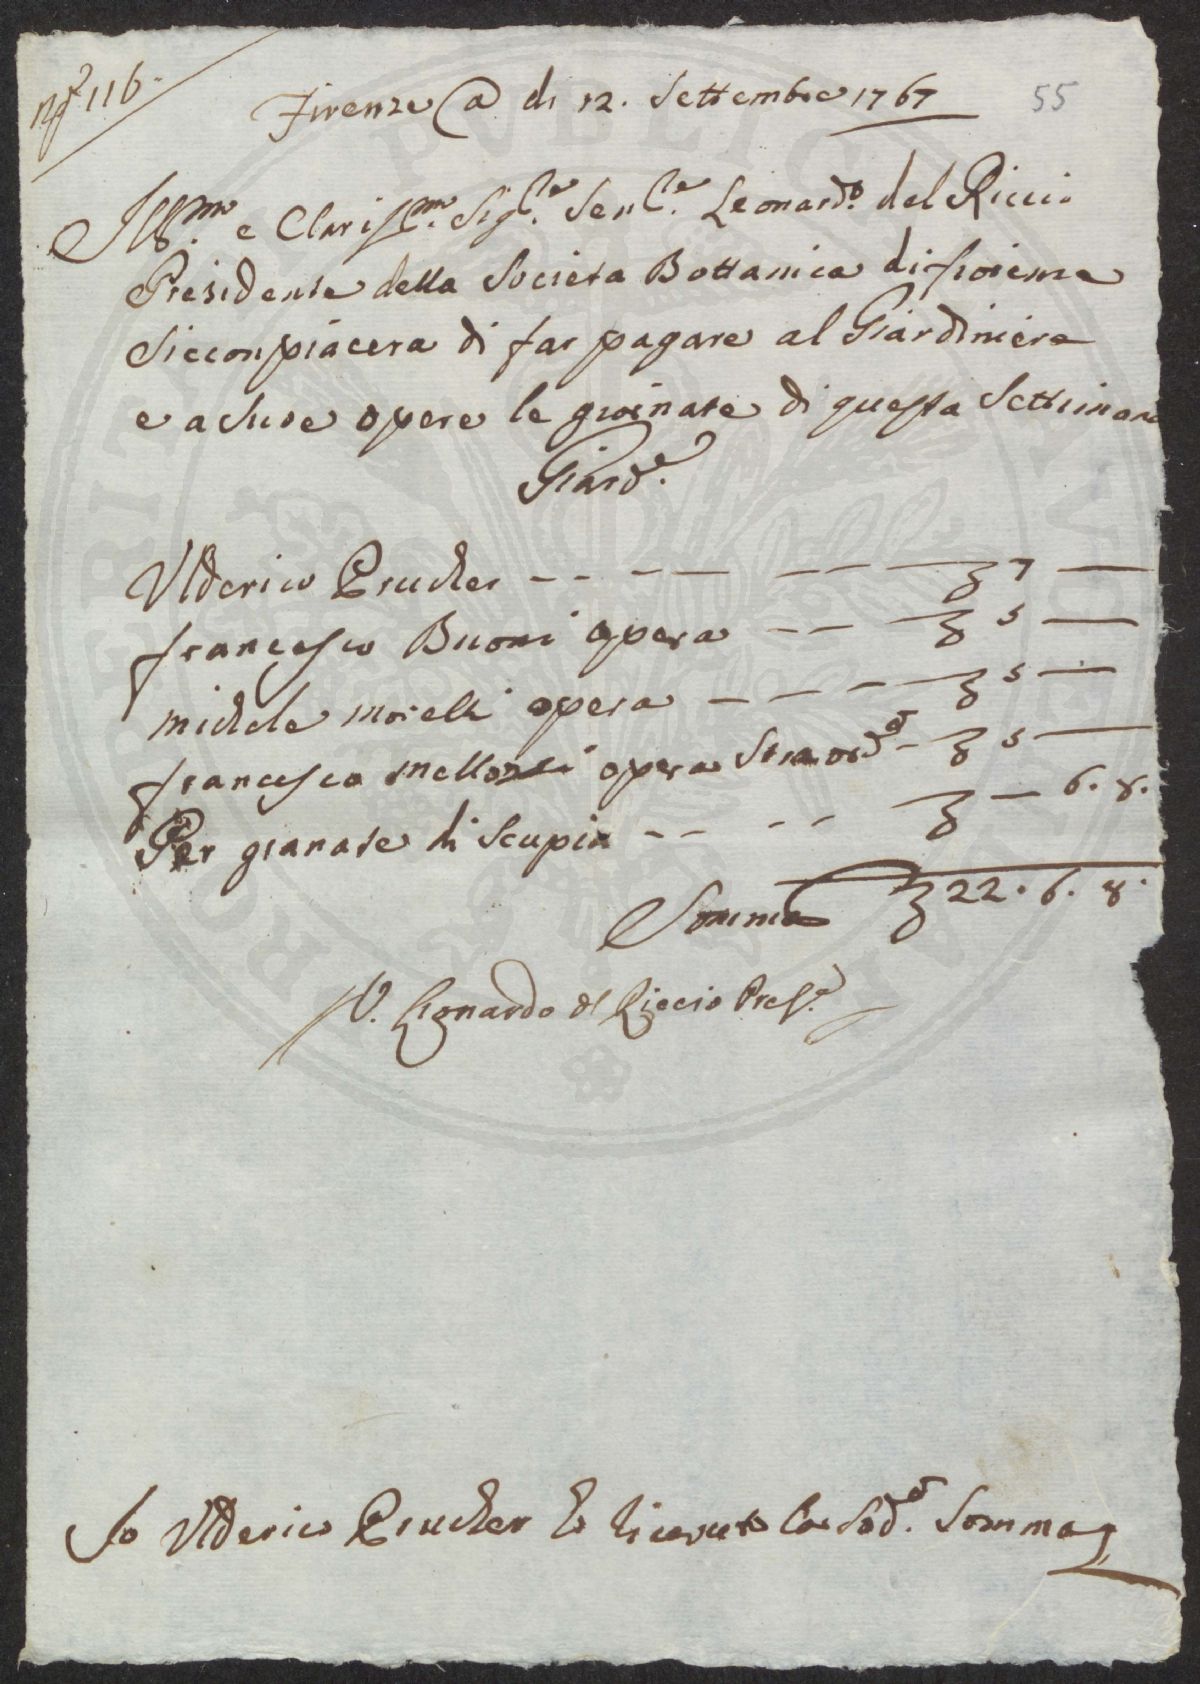 N° 116.
Firenze @ di 12. Settembre 1767
55
Ill.mo e Clariss.mo Sig.le Sen.le Leonard.o del Ricci.
Presidente della Societa Bottanica di fiorenza
Siccompiacera di far pagare al Giardiniere
e a Sue opere le giornate di questa Settimana
Giard.e
Ulderico Prucher -- -- -- 7 —
francesco Buoni opera -- — 5 —
michele morelli opera — — - — 5 —
francesco mellonsi opera Straord.a - 5 —
Per granate di Scupia -- -- — 6. 8.
Somma 22. 6. 8.
V. Lionardo del Riccio Pres.e
Io Ulderico Prucher ho ricevuto la Sod.a Somma
PVBLIC